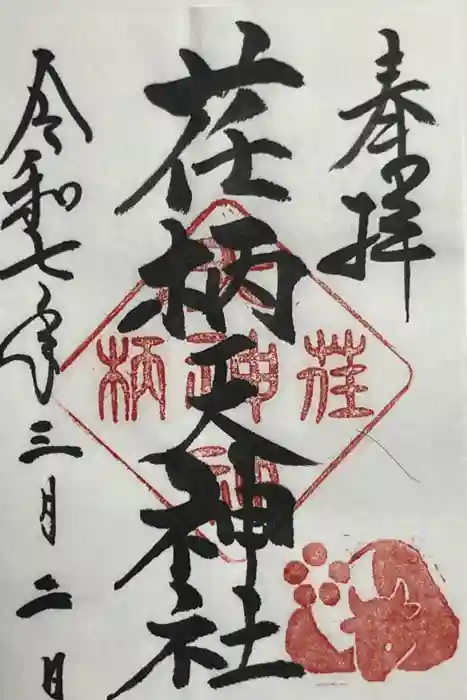 奉拝
荏柄天神社
令和七年三月二日
荏
柄